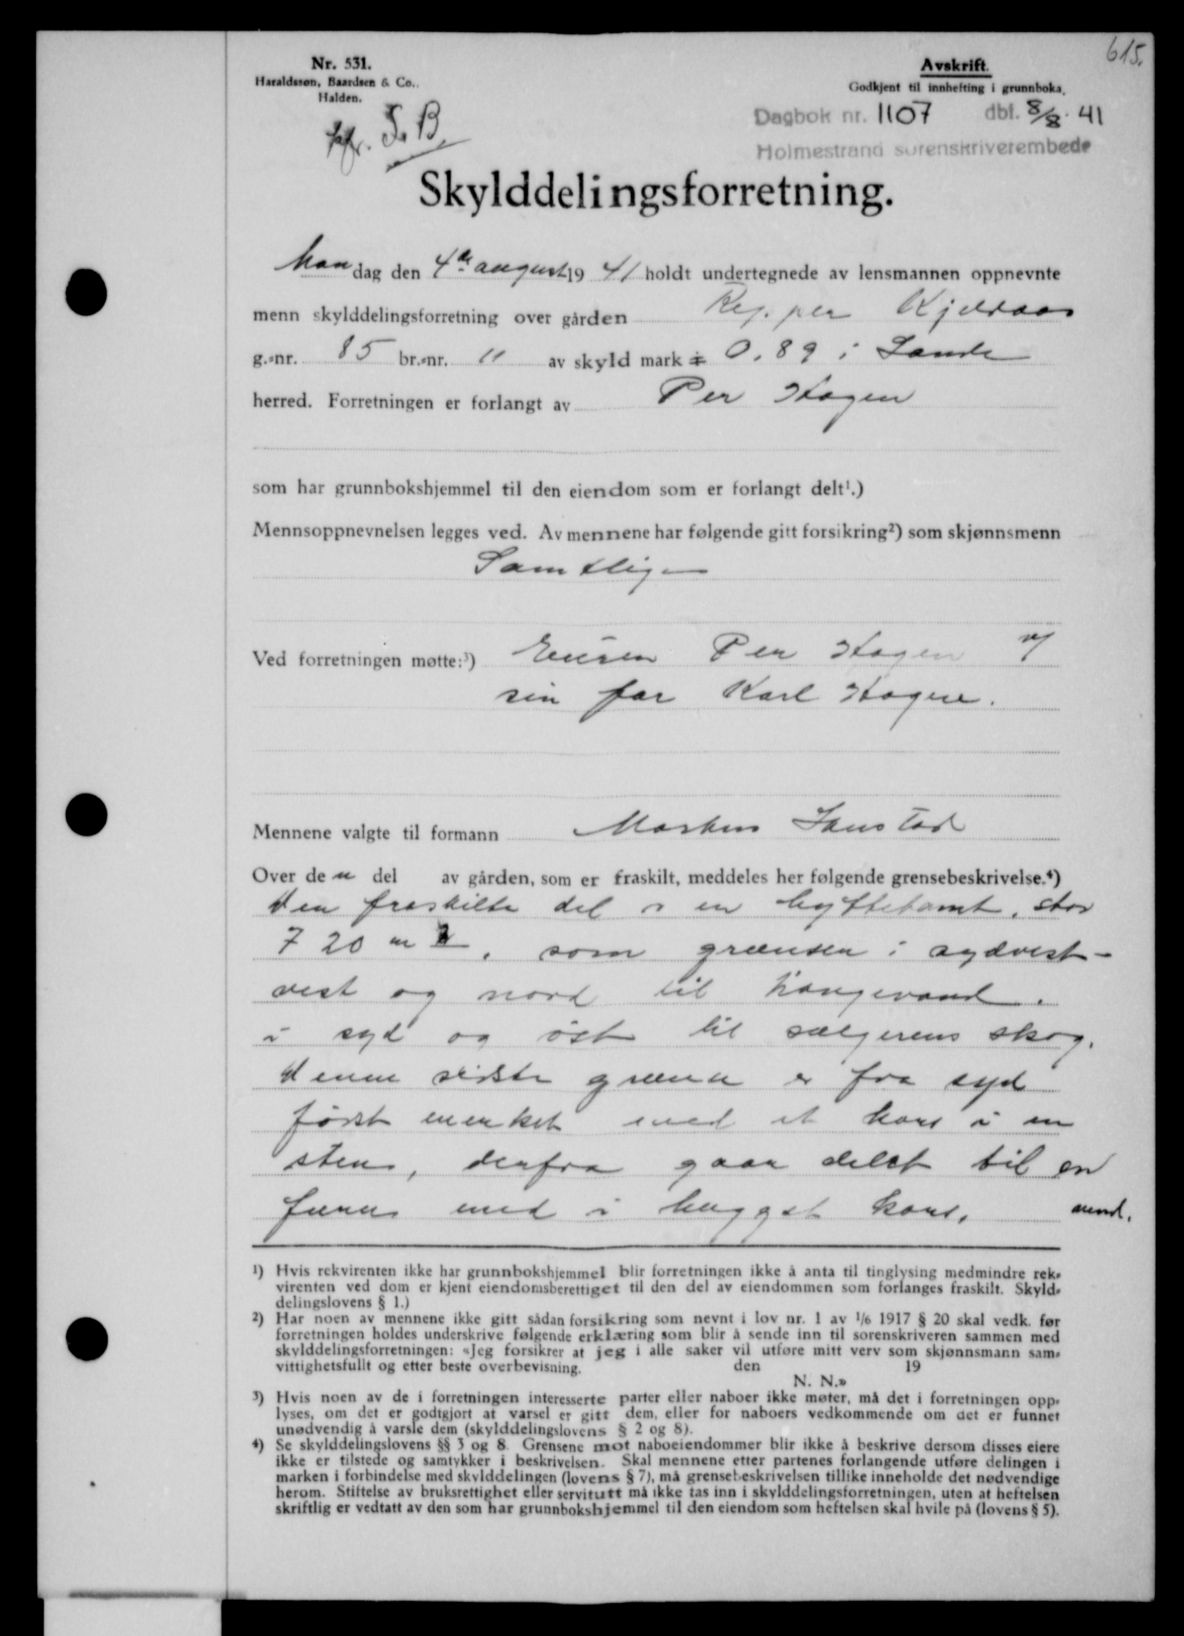 615.
Nr. 531.
Haraldssen, Baardsen & Co.,
Halden.
Avskrift.
Godkjent til innhefting i grunnboka.
Dagbok nr. 1107 dbf. 8/8 41
Holmestrand sorenskriverembede
S. B.
Skylddelingsforretning.
Man dag den 4de august 19 41 holdt undertegnede av lensmannen oppnevnte
menn skylddelingsforretning over gården Kjeldaas
g.-nr. 85 br.-nr. 11 av skyld mark 0.89 i Sande
herred. Forretningen er forlangt av Per Hagen
som har grunnbokshjemmel til den eiendom som er forlangt delt¹.)
Mennsoppnevnelsen legges ved. Av mennene har følgende gitt forsikring²) som skjønnsmenn
Samtlige
Ved forretningen møtte:³) Eieren Per Hagen v/
sin far Karl Hagen.
Mennene valgte til formann
Over de n del av gården, som er fraskilt, meddeles her følgende grensebeskrivelse.⁴)
Den fraskilte del er en hyttetomt, stor
720 m 2, som grænser i sydvest-
vest og nord til
i syd og øst til sælgerens skog.
Denne sidste grense er fra syd
først merket med et kors i en
sten, derfra gaar delet til en
furu med i hugget kors. vend.
¹) Hvis rekvirenten ikke har grunnbokshjemmel blir forretningen ikke å anta til tinglysing medmindre rek-
virenten ved dom er kjent eiendomsberettiget til den del av eiendommen som forlanges fraskilt. Skyld-
delingslovens § 1.)
²) Har noen av mennene ikke gitt sådan forsikring som nevnt i lov nr. 1 av 1/6 1917 § 20 skal vedk. før
forretningen holdes underskrive følgende erklæring som blir å sende inn til sorenskriveren sammen med
skylddelingsforretningen: «Jeg forsikrer at jeg i alle saker vil utføre mitt verv som skjønnsmann sam-
vittighetsfullt og etter beste overbevisning. den 19
N. N.»
³) Hvis noen av de i forretningen interesserte parter eller naboer ikke møter, må det i forretningen opp-
lyses, om det er godtgjort at varsel er gitt dem, eller for naboers vedkommende om det er funnet
unødvendig å varsle dem (skylddelingslovens § 2 og 8).
⁴) Se skylddelingslovens §§ 3 og 8. Grensene mot naboeiendommer blir ikke å beskrive dersom disses eiere
ikke er tilstede og samtykker i beskrivelsen. Skal mennene etter partenes forlangende utføre delingen i
marken i forbindelse med skylddelingen (lovens § 7), må grensebeskrivelsen tillike inneholde det nødvendige
herom. Stiftelse av bruksrettighet eller servitutt må ikke tas inn i skylddelingsforretningen, uten at heftelsen
skriftlig er vedtatt av den som har grunnbokshjemmel til den eiendom som heftelsen skal hvile på (lovens § 5).